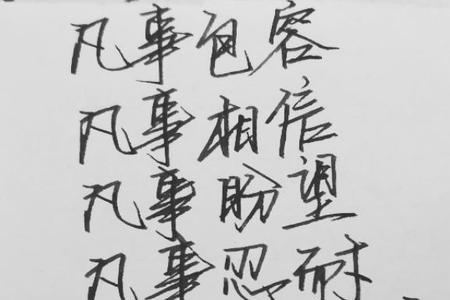 凡事包容
凡事相信
凡事盼望
凡事忍耐